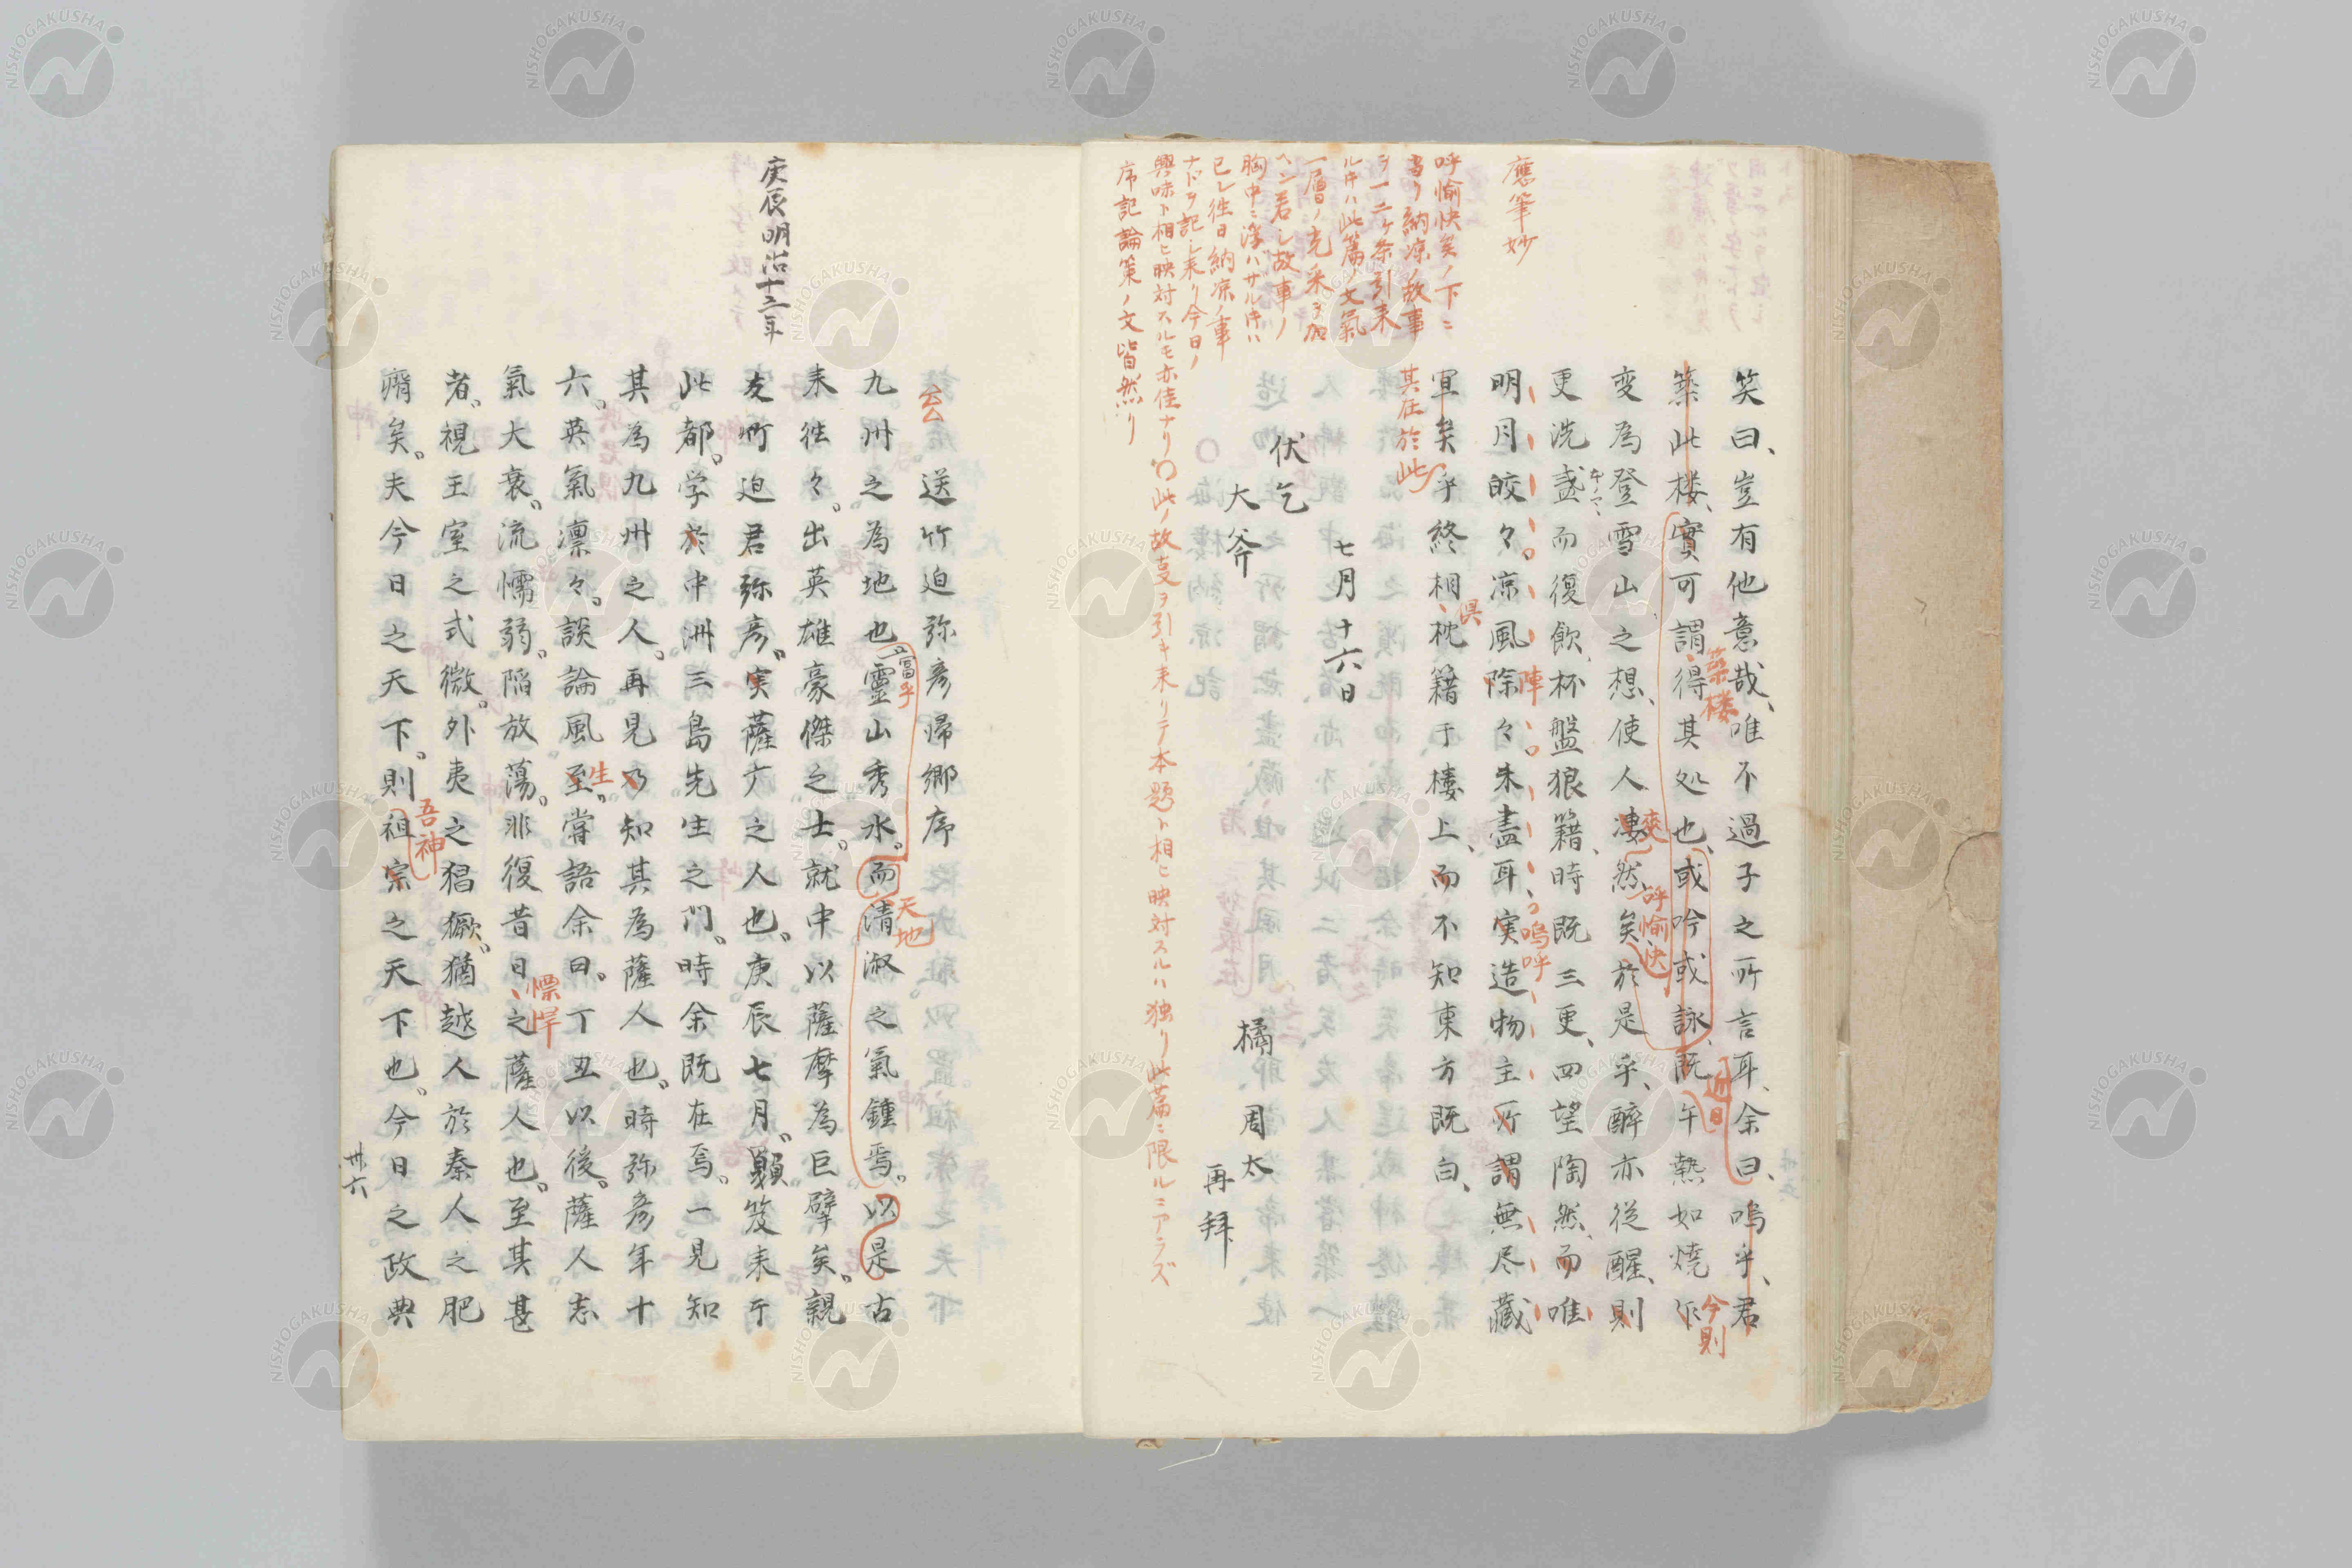 應筆妙
呼愉快矣ノ下ニ
當リ納涼ノ故事
ヲ一二ケ条引来
ルキハ此篇ノ文氣
一層ノ光采ヲ加
ヘン若シ故事ノ
胸中ニ浮ハザルキハ
已レ往日納涼ノ事
ナドヲ記シ来リ今日ノ
興味ト相ヒ映対スルモ亦佳ナリ
序記論策ノ文皆然リ
笑曰、豈有他意哉、唯不過子之所言耳、余曰、嗚乎、君
築楼
近日
今則
築此楼、實可謂得其処也、或吟或詠、既午熱如燒
変為登雪山之想、使人凄然矣、於是乎、醉亦従醒、則
爽
呼愉快
更洗盞而復飲、杯盤狼籍、時既三更、四望陶然、而唯
本ノマヽ
明月皎々、凉風除々、未盡耳、実造物主所謂無尽藏
陣
嗚呼
其在於此
矣乎終相枕籍于楼上、而不知東方既白、
倶
七月十六日
伏乞
大斧
橘周太
再拜
〇此ノ故亊ヲ引キ来リテ本題ト相ヒ映対スルハ独リ此篇ニ限ルニアラズ
庚辰明治十三年
送竹迫弥彦帰郷序
九州之為地也靈山秀水。而清淑之氣鍾焉。以是古
富乎
天地
来往々。出英雄豪傑之士。就中以薩摩為巨擘矣。親
友竹迫君弥彦。実薩之人也。庚辰七月。負笈来于
此都。学於中洲三島先生之門。時余既在焉。一見知
其為九州之人。再見乃知其為薩人也。時弥彦年十
六。英氣凛々。談論風至。嘗語余曰。丁丑以後。薩人志
生
氣大衰。流懦弱。陥放蕩。非復昔日之薩人也。至其甚
慓悍
者。視王室之式微。外夷之猖獗。猶越人於秦人之肥
瘠矣。夫今日之天下。則祖宗之天下也。今日之政典
吾神
卅六
NISHOGAKUSHA